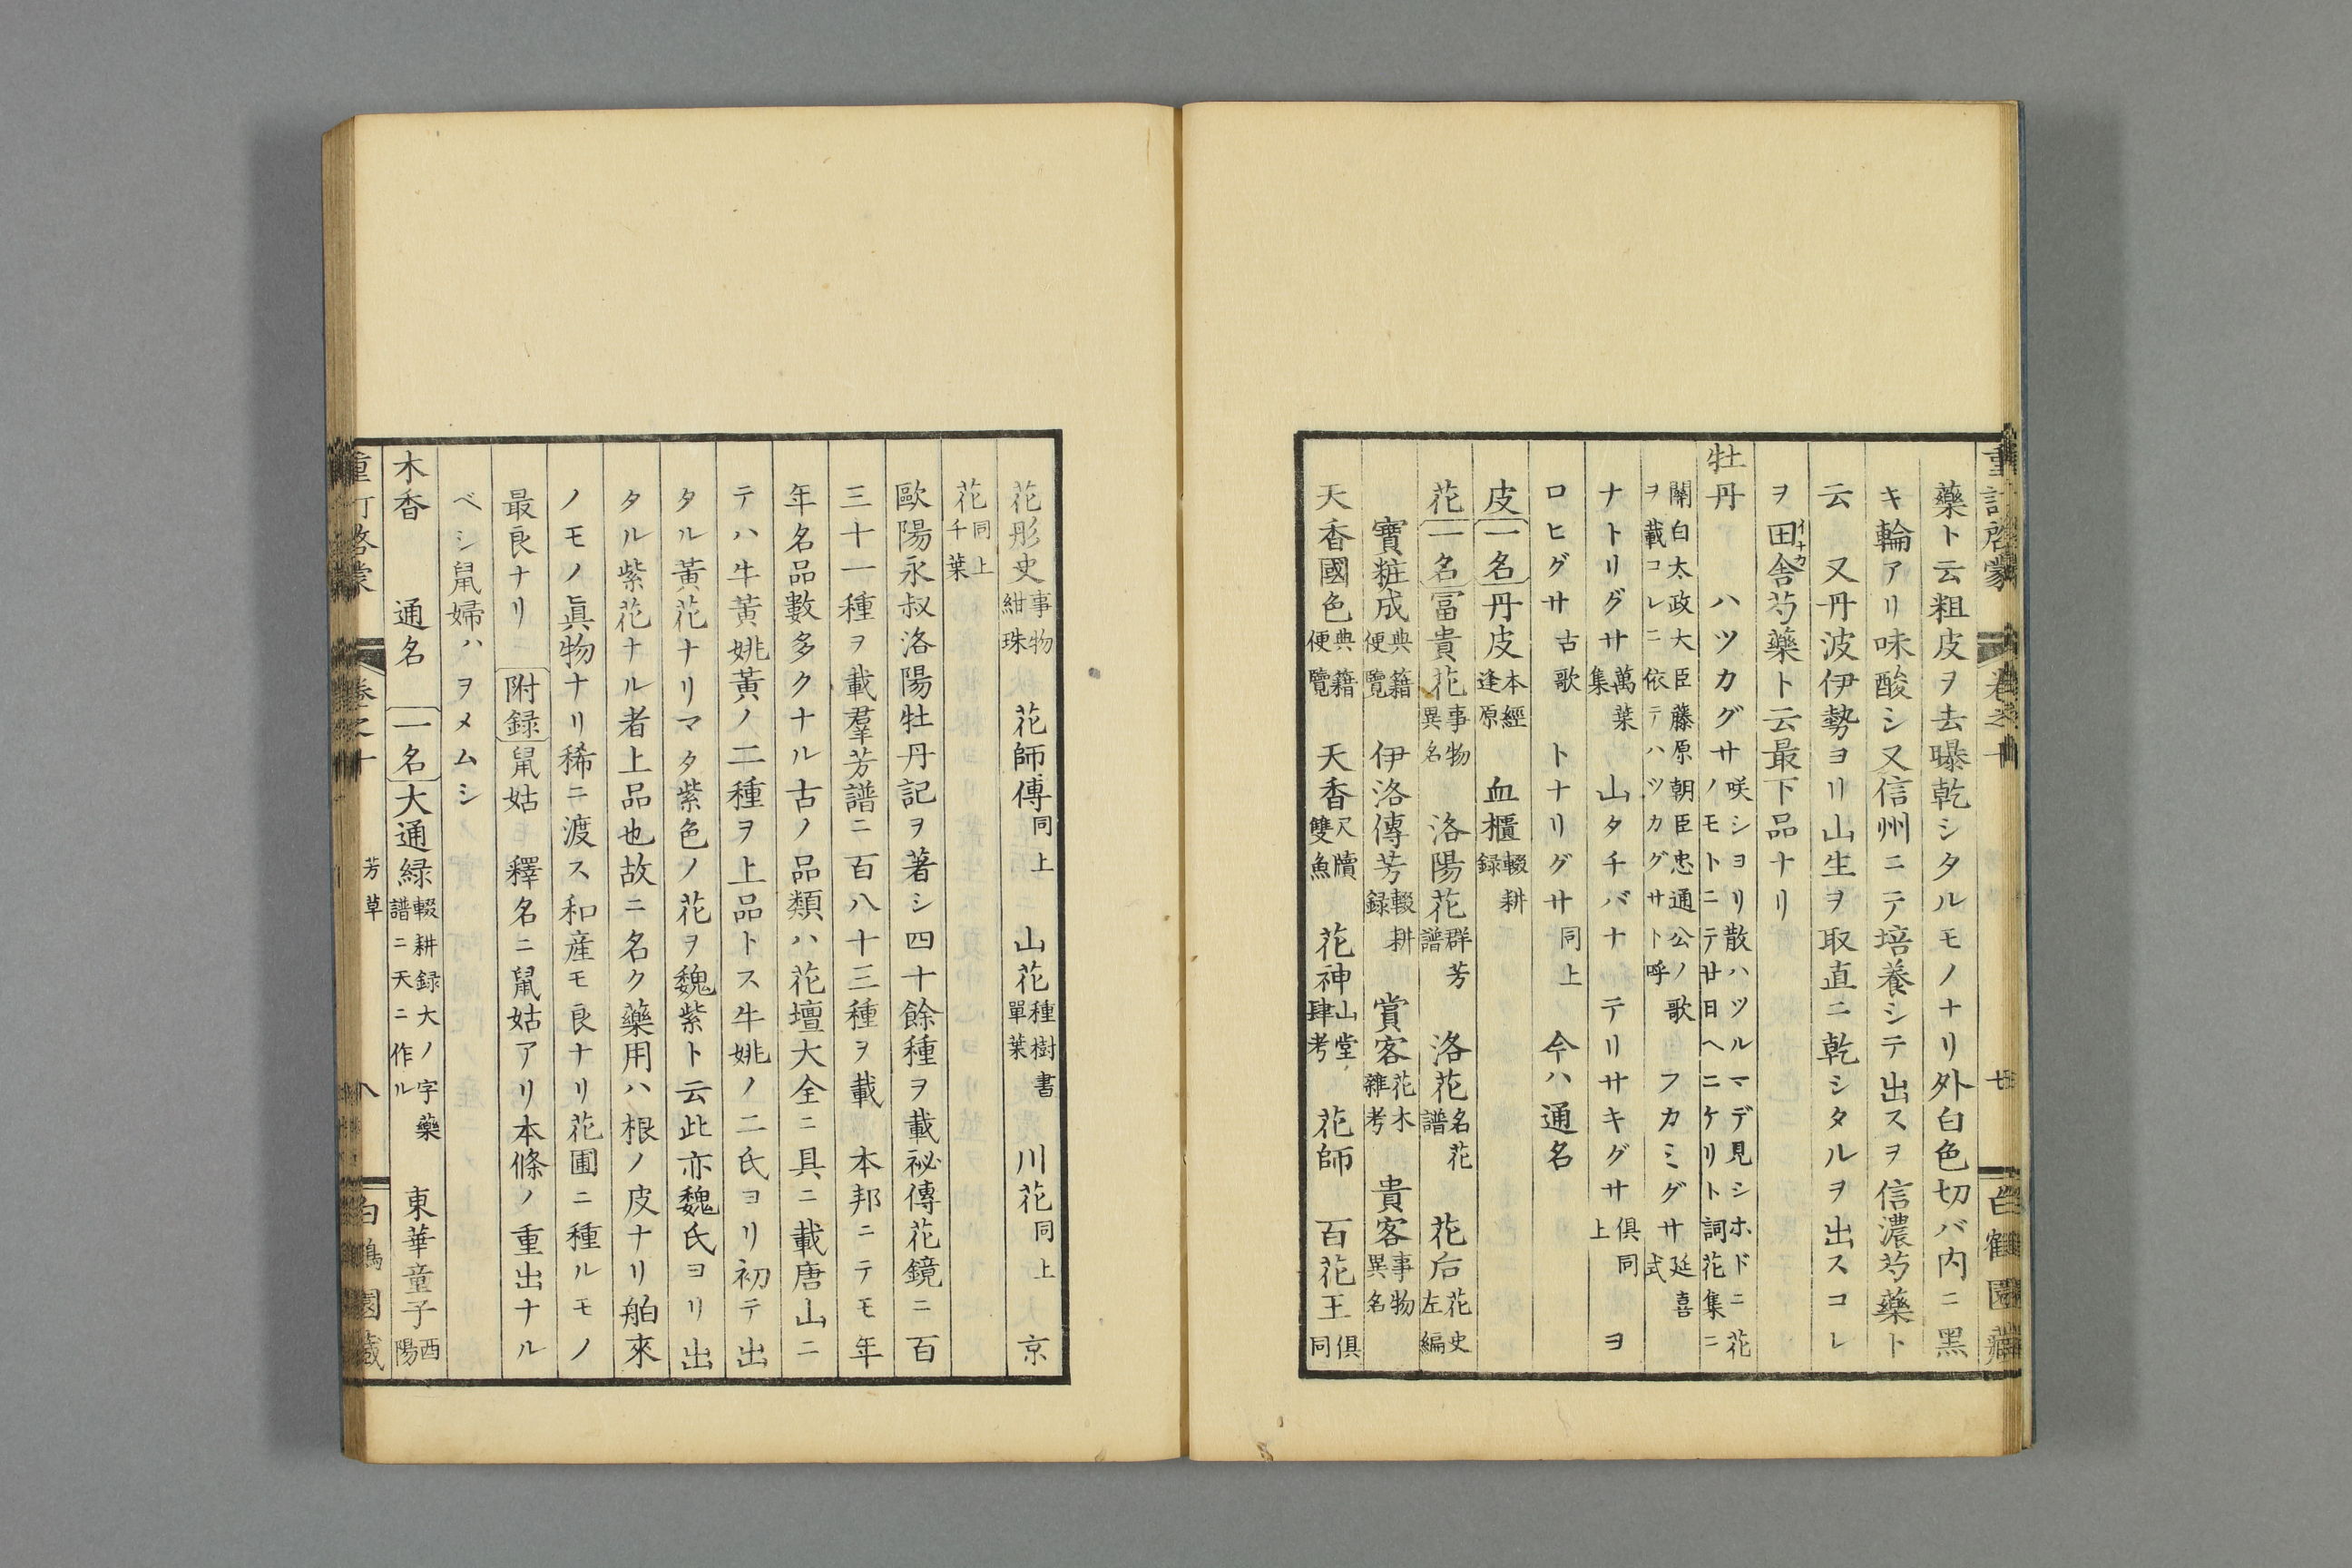 重訂啓蒙 卷之十 七 白鶴園藏
藥ト云粗皮ヲ去曝乾シタルモノナリ外白色切バ内ニ黑
キ輪アリ味酸シ又信州ニテ培養シテ出スヲ信濃芍藥ト
云 又丹波伊勢ヨリ山生ヲ取直ニ乾シタルヲ出スコレ
ヲ田舎イナカ芍藥ト云最下品ナリ
牡丹 ハツカグサ 咲シヨリ散ハツルマデ見シホドニ花ノモトニテ廿日ヘニケリト詞花集ニ
關白太政大臣藤原朝臣忠通公ノ歌ヲ載コレニ依テハツカグサト呼 フカミグサ 延喜式
ナトリグサ 萬葉集 山タチバナ テリサキグサ 俱同上 ヨ
ロヒグサ 古歌 トナリグサ 同上 今ハ通名
皮 一名 丹皮 本經逢原 血櫃 輟耕録
花 一名 富貴花 事物異名 洛陽花 群芳譜 洛花 名花譜 花后 花史左編
寶粧成 典籍便覽 伊洛傳芳 輟耕録 賞客 花木雜考 貴客 事物異名
天香國色 典籍便覽 天香 尺牘雙魚 花神 山堂肆考 花師 百花王 俱同
花彤史 事物紺珠 花師傳 同上 山花 種樹書單葉 川花 同上 京
花 同上千葉
歐陽永叔洛陽牡丹記ヲ著シ四十餘種ヲ載祕傳花鏡ニ百
三十一種ヲ載羣芳譜ニ百八十三種ヲ載 本邦ニテモ年
年名品數多クナル古ノ品類ハ花壇大全ニ具ニ載唐山ニ
テハ牛黄姚黄ノ二種ヲ上品トス牛姚ノ二氏ヨリ初テ出
タル黄花ナリマタ紫色ノ花ヲ魏紫ト云此亦魏氏ヨリ出
タル紫花ナル者上品也故ニ名ク藥用ハ根ノ皮ナリ舶來
ノモノ眞物ナリ稀ニ渡ス和産モ良ナリ花圃ニ種ルモノ
最良ナリ 附録 鼠姑 釋名ニ鼠姑アリ本條ノ重出ナル
ベシ鼠婦ハヲメムシ
木香 通名 一名 大通緑 輟耕録大ノ字藥譜ニ天ニ作ル 東華童子 酉陽
重訂啓蒙 卷之十 芳草 八 白鶴園藏